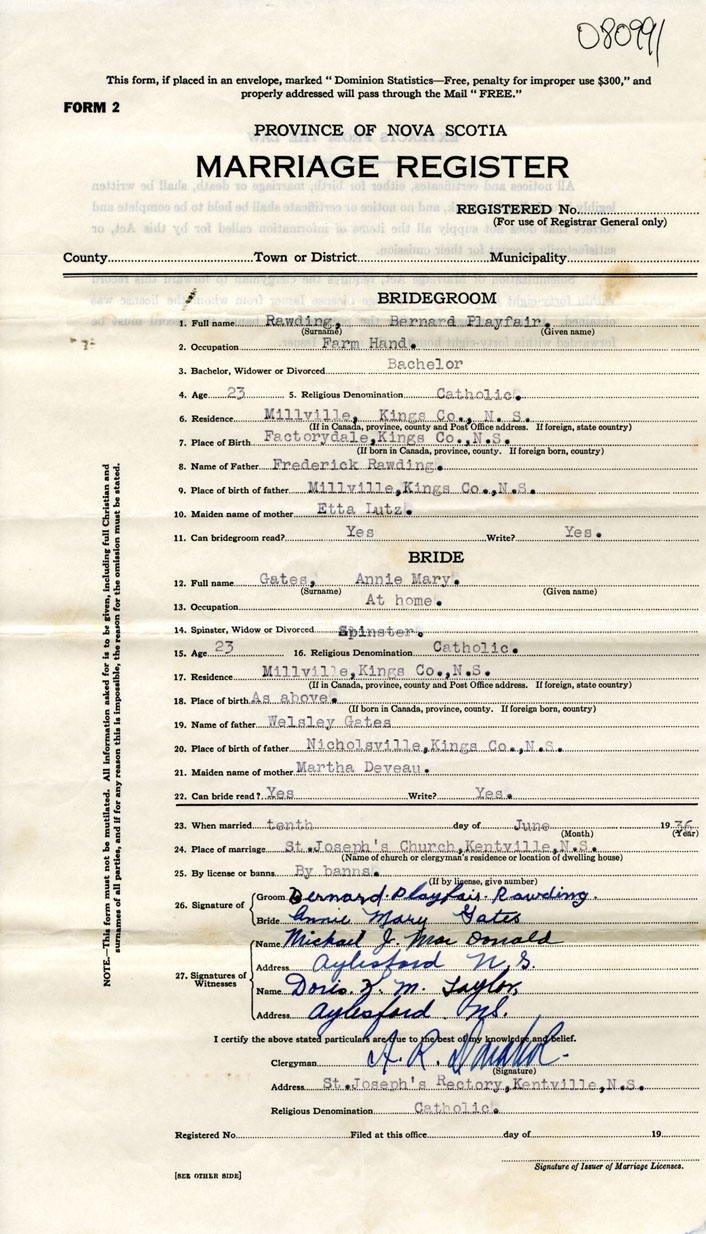 080991
This form, if placed in an envelope, marked " Dominion Statistics—Free, penalty for improper use $300," and
properly addressed will pass through the Mail " FREE."
FORM 2
PROVINCE OF NOVA SCOTIA
MARRIAGE REGISTER
REGISTERED No.
(For use of Registrar General only)
County Town or District Municipality
BRIDEGROOM
1. Full name Rawding, Bernard Playfair.
(Surname) (Given name)
2. Occupation Farm Hand.
3. Bachelor, Widower or Divorced Bachelor
4. Age 23 5. Religious Denomination Catholic.
6. Residence Millville, Kings Co., N. S.
(If in Canada, province, county and Post Office address. If foreign, state country)
7. Place of Birth Factorydale,Kings Co.,N.S.
(If born in Canada, province, county. If foreign born, country)
8. Name of Father Frederick Rawding.
9. Place of birth of father Millville,Kings Co.,N.S.
10. Maiden name of mother Etta Lutz.
11. Can bridegroom read? Yes Write? Yes.
BRIDE
12. Full name Gates, Annie Mary.
(Surname) (Given name)
13. Occupation At home.
14. Spinster, Widow or Divorced Spinster.
15. Age 23 16. Religious Denomination Catholic.
17. Residence Millville,Kings Co.,N.S.
(If in Canada, province, county and Post Office address. If foreign, state country)
18. Place of birth As above.
(If born in Canada, province, county. If foreign born, country)
19. Name of father Welsley Gates
20. Place of birth of father Nicholsville,Kings Co.,N.S.
21. Maiden name of mother Martha Deveau.
22. Can bride read? Yes Write? Yes.
23. When married tenth day of June 1936
(Month) (Year)
24. Place of marriage St.Joseph's Church,Kentville,N.S.
(Name of church or clergyman's residence or location of dwelling house)
25. By license or banns. By banns.
(If by license, give number)
26. Signature of Groom Bernard Playfair Rawding.
Bride Annie Mary Gates
27. Signatures of Witnesses
Name Michael J. Mac Donald
Address Aylesford N.S.
Name Doris M. Taylor,
Address Aylesford NS.
I certify the above stated particulars are true to the best of my knowledge and belief.
Clergyman A. R.
(Signature)
Address St.Joseph's Rectory,Kentville,N.S.
Religious Denomination Catholic.
Registered No. Filed at this office day of 19
Signature of Issuer of Marriage Licenses.
[SEE OTHER SIDE]
NOTE.—This form must not be mutilated. All information asked for is to be given, including full Christian and
surnames of all parties, and if for any reason this is impossible, the reason for the omission must be stated.